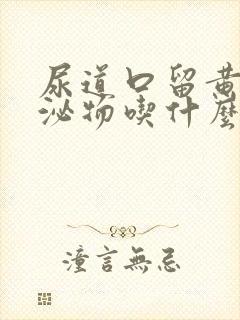 尿道口留黄
泌物喫什麽
潼言無忌